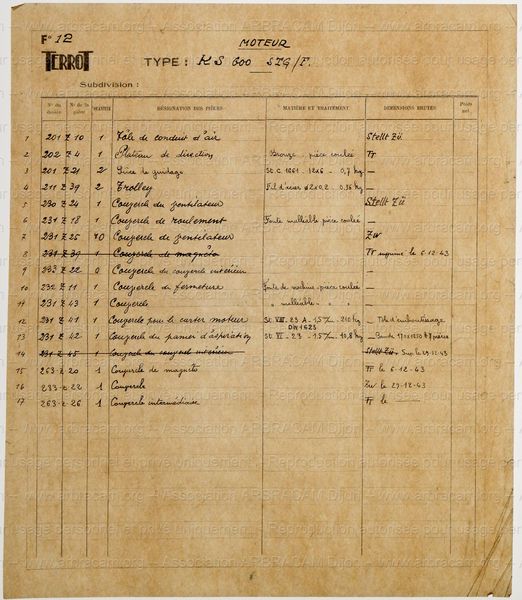 F° 12
MOTEUR
TERROT
TYPE : KS 600 STG/F.
Subdivision :
N° du dessin N° de la pièce QUANTITÉ DÉSIGNATION DES PIÈCES MATIÈRE ET TRAITEMENT DIMENSIONS BRUTES Poids net
1 201 Z 10 1 Tôle de conduit d'air Stellt Zü.
2 202 Z 4 1 Plateau de direction Bronze pièce coulée Tr
3 201 Z 21 2 Pièce de guidage St. C. 1661 - 12x6 - 0,7 kg —
4 211 Z 39 2 Trolley Fil d'acier ø2x0,2 - 0,36 kg —
5 230 Z 24 1 Couvercle du ventilateur Stellt Zü
6 231 Z 18 1 Couvercle de roulement Fonte malléable pièce coulée —
7 231 Z 25 Couvercle de ventilateur Zw
8 231 Z 39 1 Couvercle de magnéto Tr supprimé le 6-12-43
9 233 Z 22 0 Couvercle du couvercle intérieur —
10 232 Z 11 1 Couvercle de fermeture Fonte de machine - pièce coulée —
11 231 Z 43 1 Couvercle " malléable - " " —
12 231 Z 41 1 Couvercle pour le carter moteur St VIII - 23 A - 1,5 m/m - 210 kg - Tôle d'emboutissage
DIN 1623
13 231 Z 42 1 Couvercle du panier d'aspiration St VI - 23 - 1,5 m/m - 10,8 kg
14 231 Z 45 1 Couvercle du couvercle intérieur Stellt Zü. Sup. le 29-12-43
15 263 Z 20 1 Couvercle de magnéto Tr le 6-12-43
16 233 Z 22 1 Couvercle Zw le 29-12-43
17 263 Z 26 1 Couvercle intermédiaire Tr le
www.arbracam.org – Association ARBRACAM Dijon – Reproduction autorisée pour usage personnel et privé uniquement